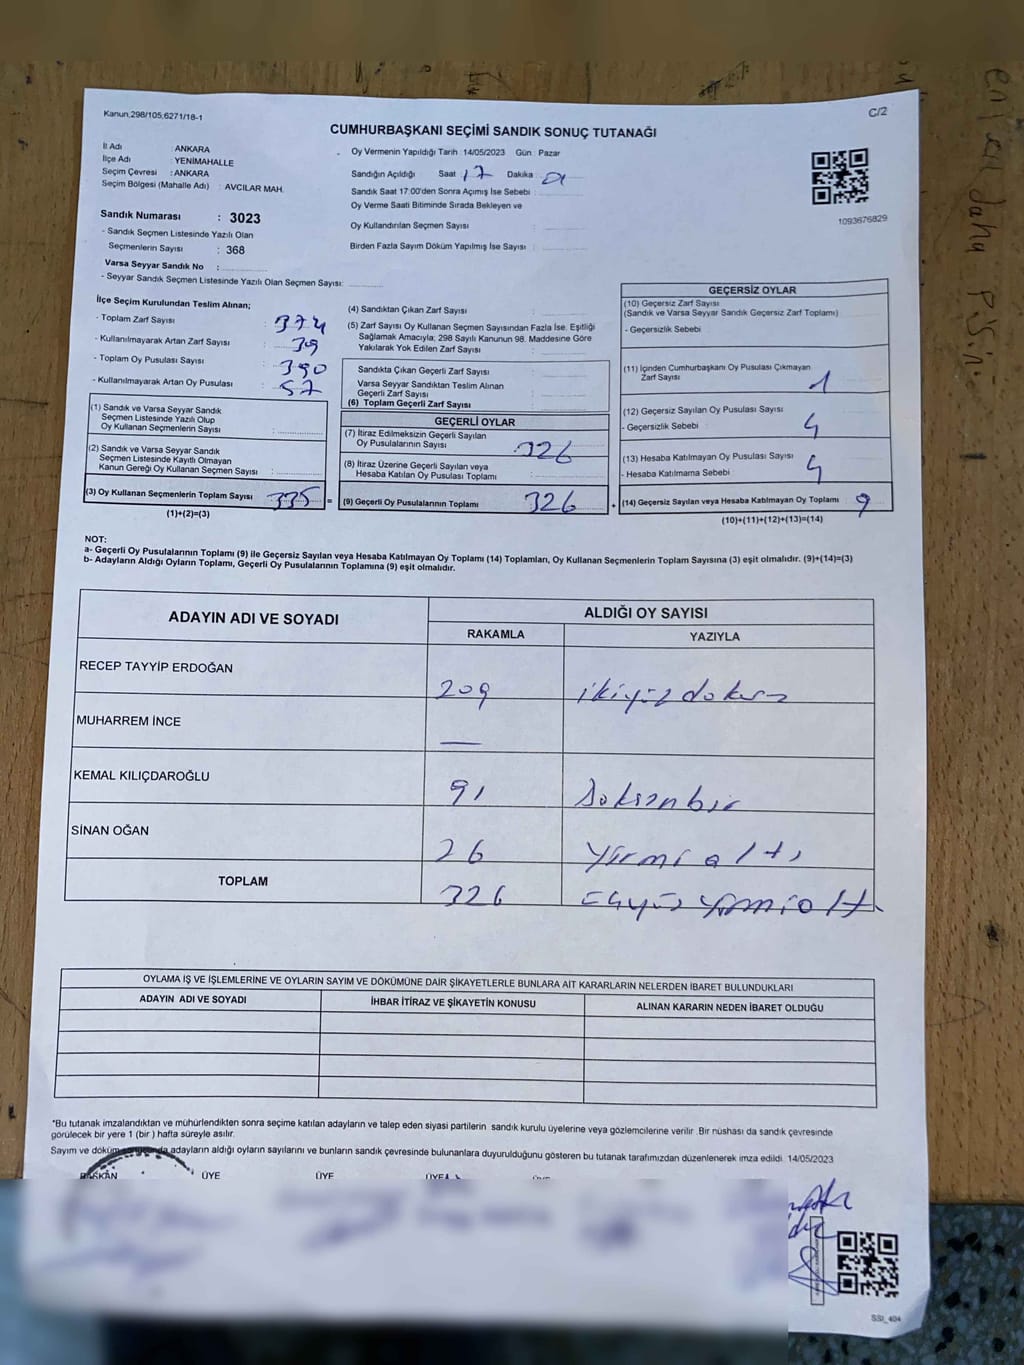 Kanun,298/105;6271/18-1
C/2
CUMHURBAŞKANI SEÇİMİ SANDIK SONUÇ TUTANAĞI
İl Adı : ANKARA
İlçe Adı : YENİMAHALLE
Seçim Çevresi : ANKARA
Seçim Bölgesi (Mahalle Adı) : AVCILAR MAH.
Oy Vermenin Yapıldığı Tarih :14/05/2023 Gün : Pazar
Sandığın Açıldığı Saat : 17 Dakika :
Sandık Saat 17:00'den Sonra Açımış İse Sebebi :
Oy Verme Saati Bitiminde Sırada Bekleyen ve
Oy Kullandırılan Seçmen Sayısı :
Birden Fazla Sayım Döküm Yapılmış İse Sayısı :
1093676829
Sandık Numarası : 3023
- Sandık Seçmen Listesinde Yazılı Olan
Seçmenlerin Sayısı : 368
Varsa Seyyar Sandık No :
- Seyyar Sandık Seçmen Listesinde Yazılı Olan Seçmen Sayısı:
İlçe Seçim Kurulundan Teslim Alınan;
- Toplam Zarf Sayısı : 374
- Kullanılmayarak Artan Zarf Sayısı : 39
- Toplam Oy Pusulası Sayısı : 390
- Kullanılmayarak Artan Oy Pusulası : 57
(1) Sandık ve Varsa Seyyar Sandık
Seçmen Listesinde Yazılı Olup
Oy Kullanan Seçmenlerin Sayısı :
(2) Sandık ve Varsa Seyyar Sandık
Seçmen Listesinde Kayıtlı Olmayan
Kanun Gereği Oy Kullanan Seçmen Sayısı :
(3) Oy Kullanan Seçmenlerin Toplam Sayısı 335 =
(1)+(2)=(3)
(4) Sandıktan Çıkan Zarf Sayısı :
(5) Zarf Sayısı Oy Kullanan Seçmen Sayısından Fazla İse, Eşitliği
Sağlamak Amacıyla; 298 Sayılı Kanunun 98. Maddesine Göre
Yakılarak Yok Edilen Zarf Sayısı :
Sandıkta Çıkan Geçerli Zarf Sayısı :
Varsa Seyyar Sandıktan Teslim Alınan
Geçerli Zarf Sayısı :
(6) Toplam Geçerli Zarf Sayısı :
GEÇERLİ OYLAR
(7) İtiraz Edilmeksizin Geçerli Sayılan
Oy Pusulalarının Sayısı : 326
(8) İtiraz Üzerine Geçerli Sayılan veya
Hesaba Katılan Oy Pusulası Toplamı :
(9) Geçerli Oy Pusulalarının Toplamı 326 +
GEÇERSİZ OYLAR
(10) Geçersiz Zarf Sayısı
(Sandık ve Varsa Seyyar Sandık Geçersiz Zarf Toplamı)
- Geçersizlik Sebebi
(11) İçinden Cumhurbaşkanı Oy Pusulası Çıkmayan
Zarf Sayısı : 1
(12) Geçersiz Sayılan Oy Pusulası Sayısı : 4
- Geçersizlik Sebebi
(13) Hesaba Katılmayan Oy Pusulası Sayısı : 4
- Hesaba Katılmama Sebebi
(14) Geçersiz Sayılan veya Hesaba Katılmayan Oy Toplamı 9
(10)+(11)+(12)+(13)=(14)
NOT:
a- Geçerli Oy Pusulalarının Toplamı (9) ile Geçersiz Sayılan veya Hesaba Katılmayan Oy Toplamı (14) Toplamları, Oy Kullanan Seçmenlerin Toplam Sayısına (3) eşit olmalıdır. (9)+(14)=(3)
b- Adayların Aldığı Oyların Toplamı, Geçerli Oy Pusulalarının Toplamına (9) eşit olmalıdır.
ADAYIN ADI VE SOYADI
ALDIĞI OY SAYISI
RAKAMLA YAZIYLA
RECEP TAYYİP ERDOĞAN 209 ikiyüzdokuz
MUHARREM İNCE —
KEMAL KILIÇDAROĞLU 91 doksanbir
SİNAN OĞAN 26 yirmi altı
TOPLAM 326 üçyüz yirmialtı
OYLAMA İŞ VE İŞLEMLERİNE VE OYLARIN SAYIM VE DÖKÜMÜNE DAİR ŞİKAYETLERLE BUNLARA AİT KARARLARIN NELERDEN İBARET BULUNDUKLARI
ADAYIN ADI VE SOYADI İHBAR İTİRAZ VE ŞİKAYETİN KONUSU ALINAN KARARIN NEDEN İBARET OLDUĞU
*Bu tutanak imzalandıktan ve mühürlendikten sonra seçime katılan adayların ve talep eden siyasi partilerin sandık kurulu üyelerine veya gözlemcilerine verilir .Bir nüshası da sandık çevresinde
görülecek bir yere 1 (bir ) hafta süreyle asılır.
Sayım ve döküm sonucunda adayların aldığı oyların sayılarını ve bunların sandık çevresinde bulunanlara duyurulduğunu gösteren bu tutanak tarafımızdan düzenlenerek imza edildi. 14/05/2023
BAŞKAN ÜYE ÜYE ÜYE
SSI_404